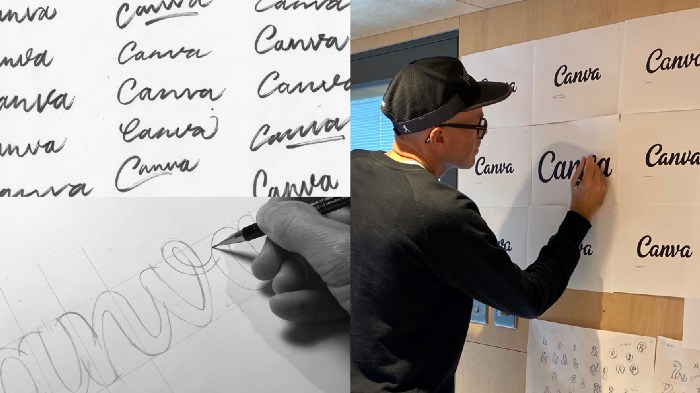 anva
Canva
Canva
anva
Canva
Canva
anva
Canva
Canva
anva
Canva
Canva
anva
Canva
Canva
anva
Canva
Canva
Canva
Canva
Canva
Canva
nva
Canva